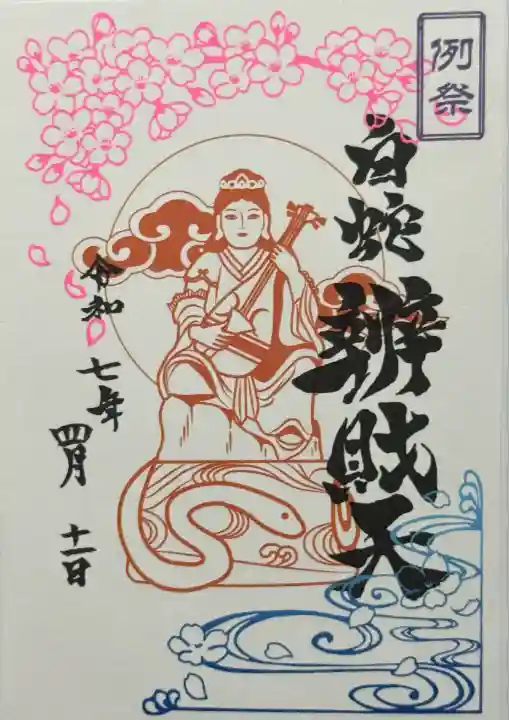 例祭
白蛇辨財天
令和七年四月十一日